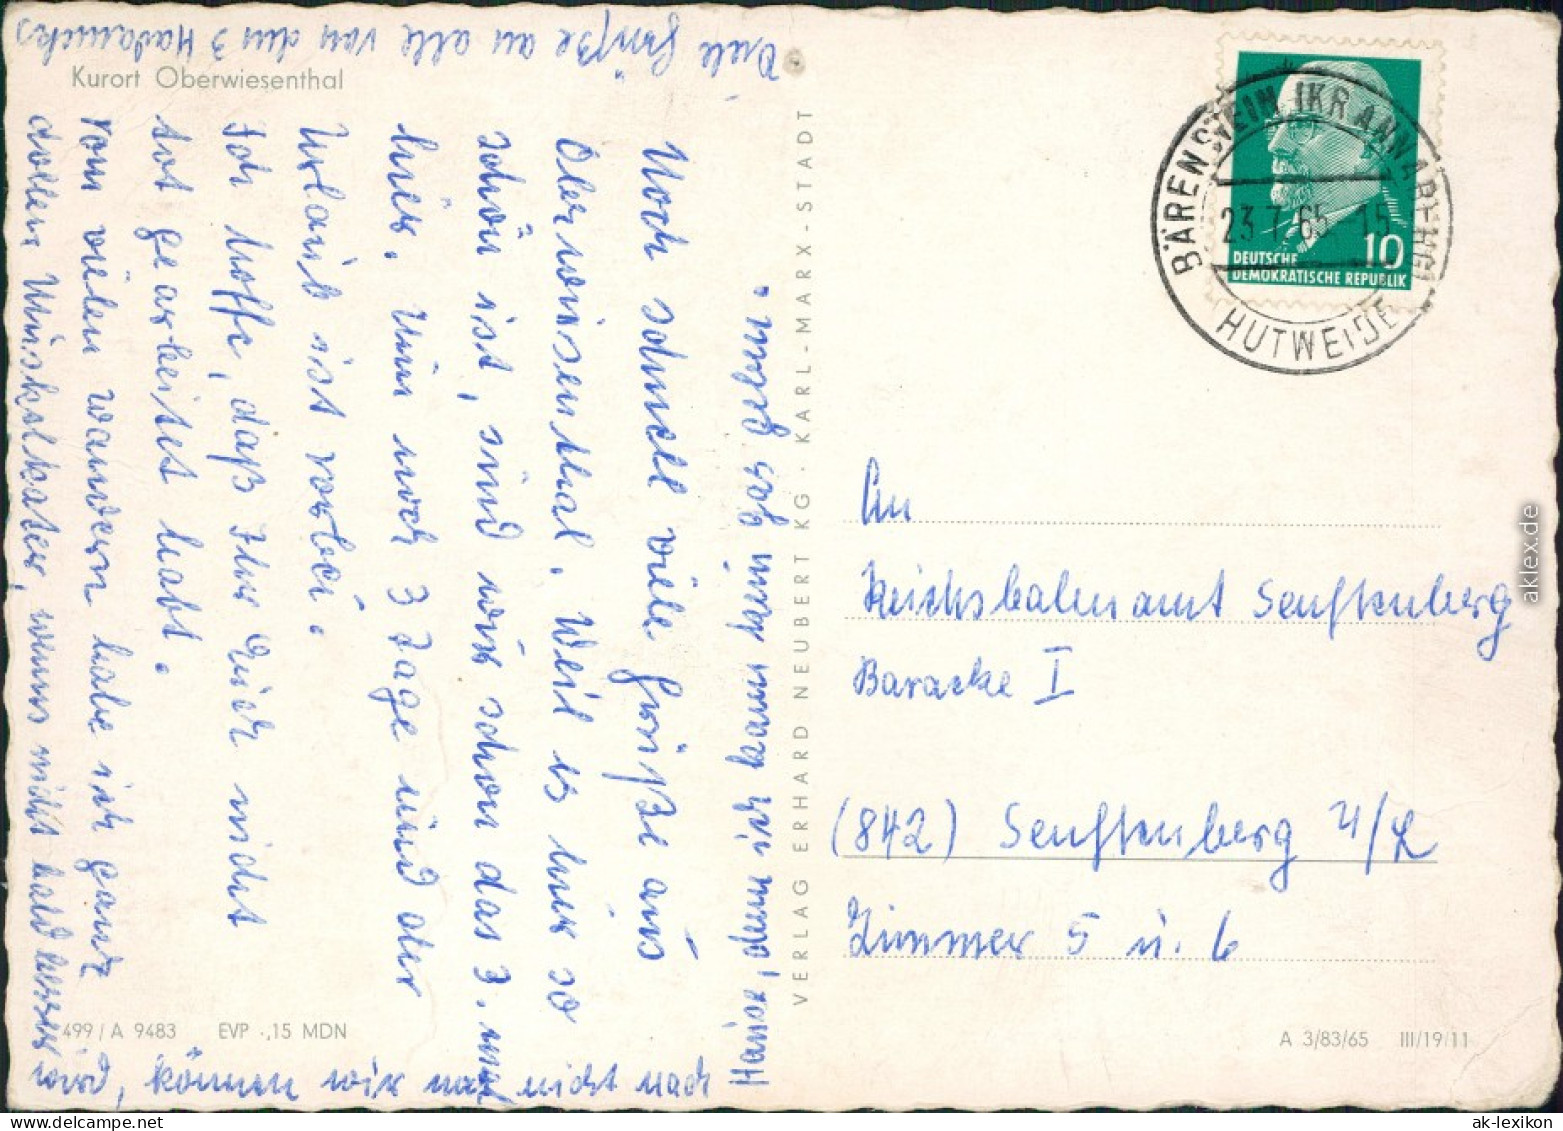 Kurort Oberwiesenthal
Noch schnell viele Grüße aus
Oberwiesenthal. Weil es hier so
schön ist, sind wir schon das 3. mal
hier. Nun noch 3 Tage und der
Urlaub ist vorbei.
Ich hoffe, daß Ihr Euch nicht
tot gearbeitet habt.
Vom vielen wandern habe ich ganz
dollen Muskelkater, wenns nicht bald besser
wird, können wir noch nicht nach
Hause, denn ich kann kaum noch gehen.
Viele Grüße an alle von den 3
VERLAG ERHARD NEUBERT KG · KARL-MARX-STADT
499/A 9483 EVP -,15 MDN
BÄRENSTEIN (KR ANNABERG)
23.7.65-15
HUTWEIDE
10
DEUTSCHE
DEMOKRATISCHE REPUBLIK
An
Reichsbahnamt Senftenberg
Baracke I
(842) Senftenberg N/L
Zimmer 5 u. 6
A 3/83/65 III/19/11
aklex.de
www.delcampe.net
ak-lexikon